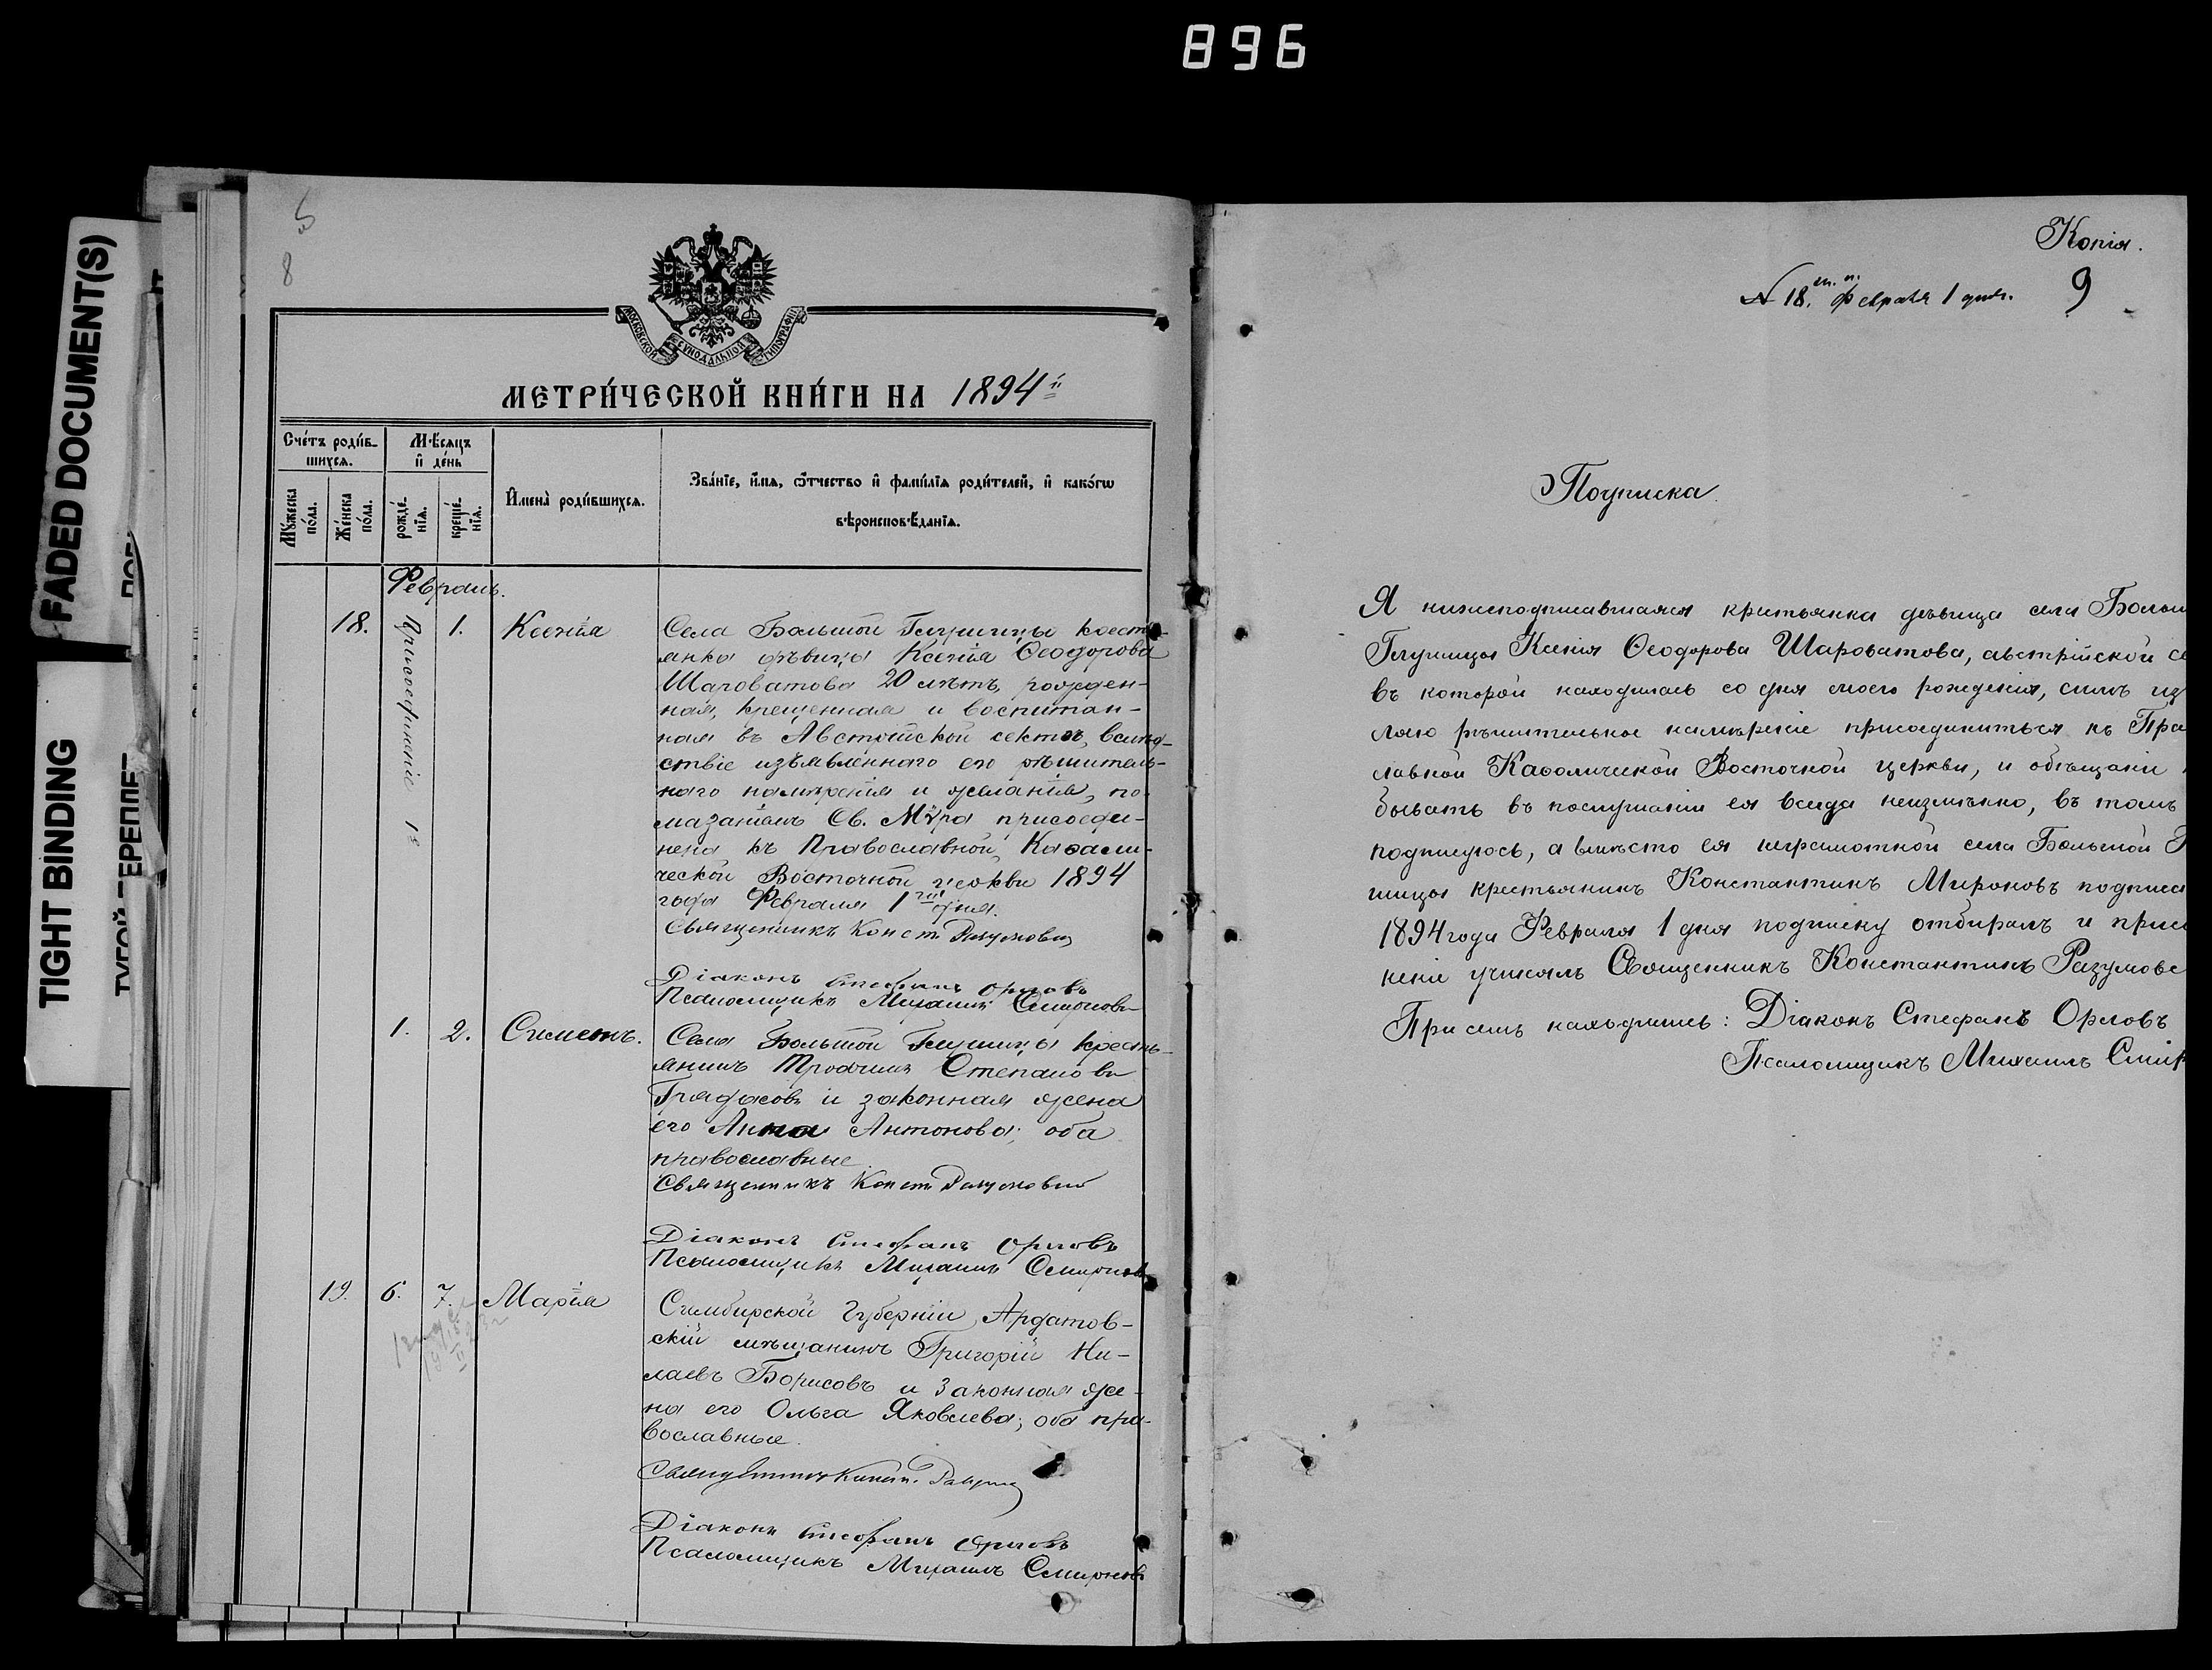 896
FADED DOCUMENT(S)
TIGHT BINDING
5
8
МОСКОВСКОЙ СѴНОДАЛЬНОЙ ТИПОГРАФІИ
МЕТРИ́ЧЕСКОЙ КНИ́ГИ НА 1894й
Сче́тъ роди́в-
шихсѧ.
Мѣ́сѧцъ
и҆ де́нь
Мꙋ́жеска
по́ла.
Же́нска
по́ла.
рожде́-
нїѧ.
креще́-
нїѧ.
И҆мена̀ роди́вшихсѧ.
Зва́нїе, и҆́мѧ, ѻ҆́тчество и҆ фами́лїѧ роди́телей, и҆ како́гѡ
вѣроисповѣ́данїѧ.
Февраль.
18.
Присоединеніе 1е
1.
Ксенія
Села Большой Глушицы кресть-
янка дѣвица Ксенія Ѳеодорова
Шароватова 20 лѣтъ, рожден-
ная, крещенная и воспитан-
ная въ Австрійской сектѣ, вслѣд-
ствіе изъявленнаго ею рѣшитель-
наго намѣренія и желанія, по-
мазаніемъ Св. Мѵра присоеди-
нена къ Православной, Каѳоли-
ческой Восточной церкви 1894
года Февраля 1го дня.
Священникъ Конст. Разумовск
Діаконъ Стефанъ Орловъ
Псаломщикъ Михаилъ Смирновъ
1.
2.
Сѵмеонъ.
Села Большой Глушицы кресть-
янинъ Трофимъ Степановъ
Грядковъ и законная жена
его Анна Антонова; оба
православные.
Священникъ Конст. Разумовскій
Діаконъ Стефанъ Орловъ
Псаломщикъ Михаилъ Смирновъ
19.
6.
7.
Марія
Сѵмбирской Губерніи, Ардатов-
скій мѣщанинъ Григорій Ни-
лаевъ Борисовъ и Законная же-
на его Ольга Яковлева; оба пра-
вославные.
Священникъ Конст. Разум
Діаконъ Стефанъ Орловъ
Псаломщикъ Михаилъ Смирновъ
Копія.
№ 18. Февраля 1 дня.
9
Подписка.
Я нижеподписавшаяся крестьянка дѣвица села Больш
Глушицы Ксенія Ѳеодорова Шароватова, австрійской се
въ которой находилась со дня своего рожденія, симъ из
ляю рѣшительное намѣреніе присоединиться къ Пра
славной Каѳолической Восточной церкви, и обѣщаніе
бывать въ послушаніи ея всегда неизмѣнно, въ томъ
подпишусь, а вмѣсто ея неграмотной села Большой Г
шицы крестьянинъ Константинъ Мироновъ подписа
1894 года Февраля 1 дня подписку отбиралъ и присо
неніе учинялъ Священникъ Константинъ Разумовс
При семъ находились: Діаконъ Стефанъ Орловъ
Псаломщикъ Михаилъ Смир